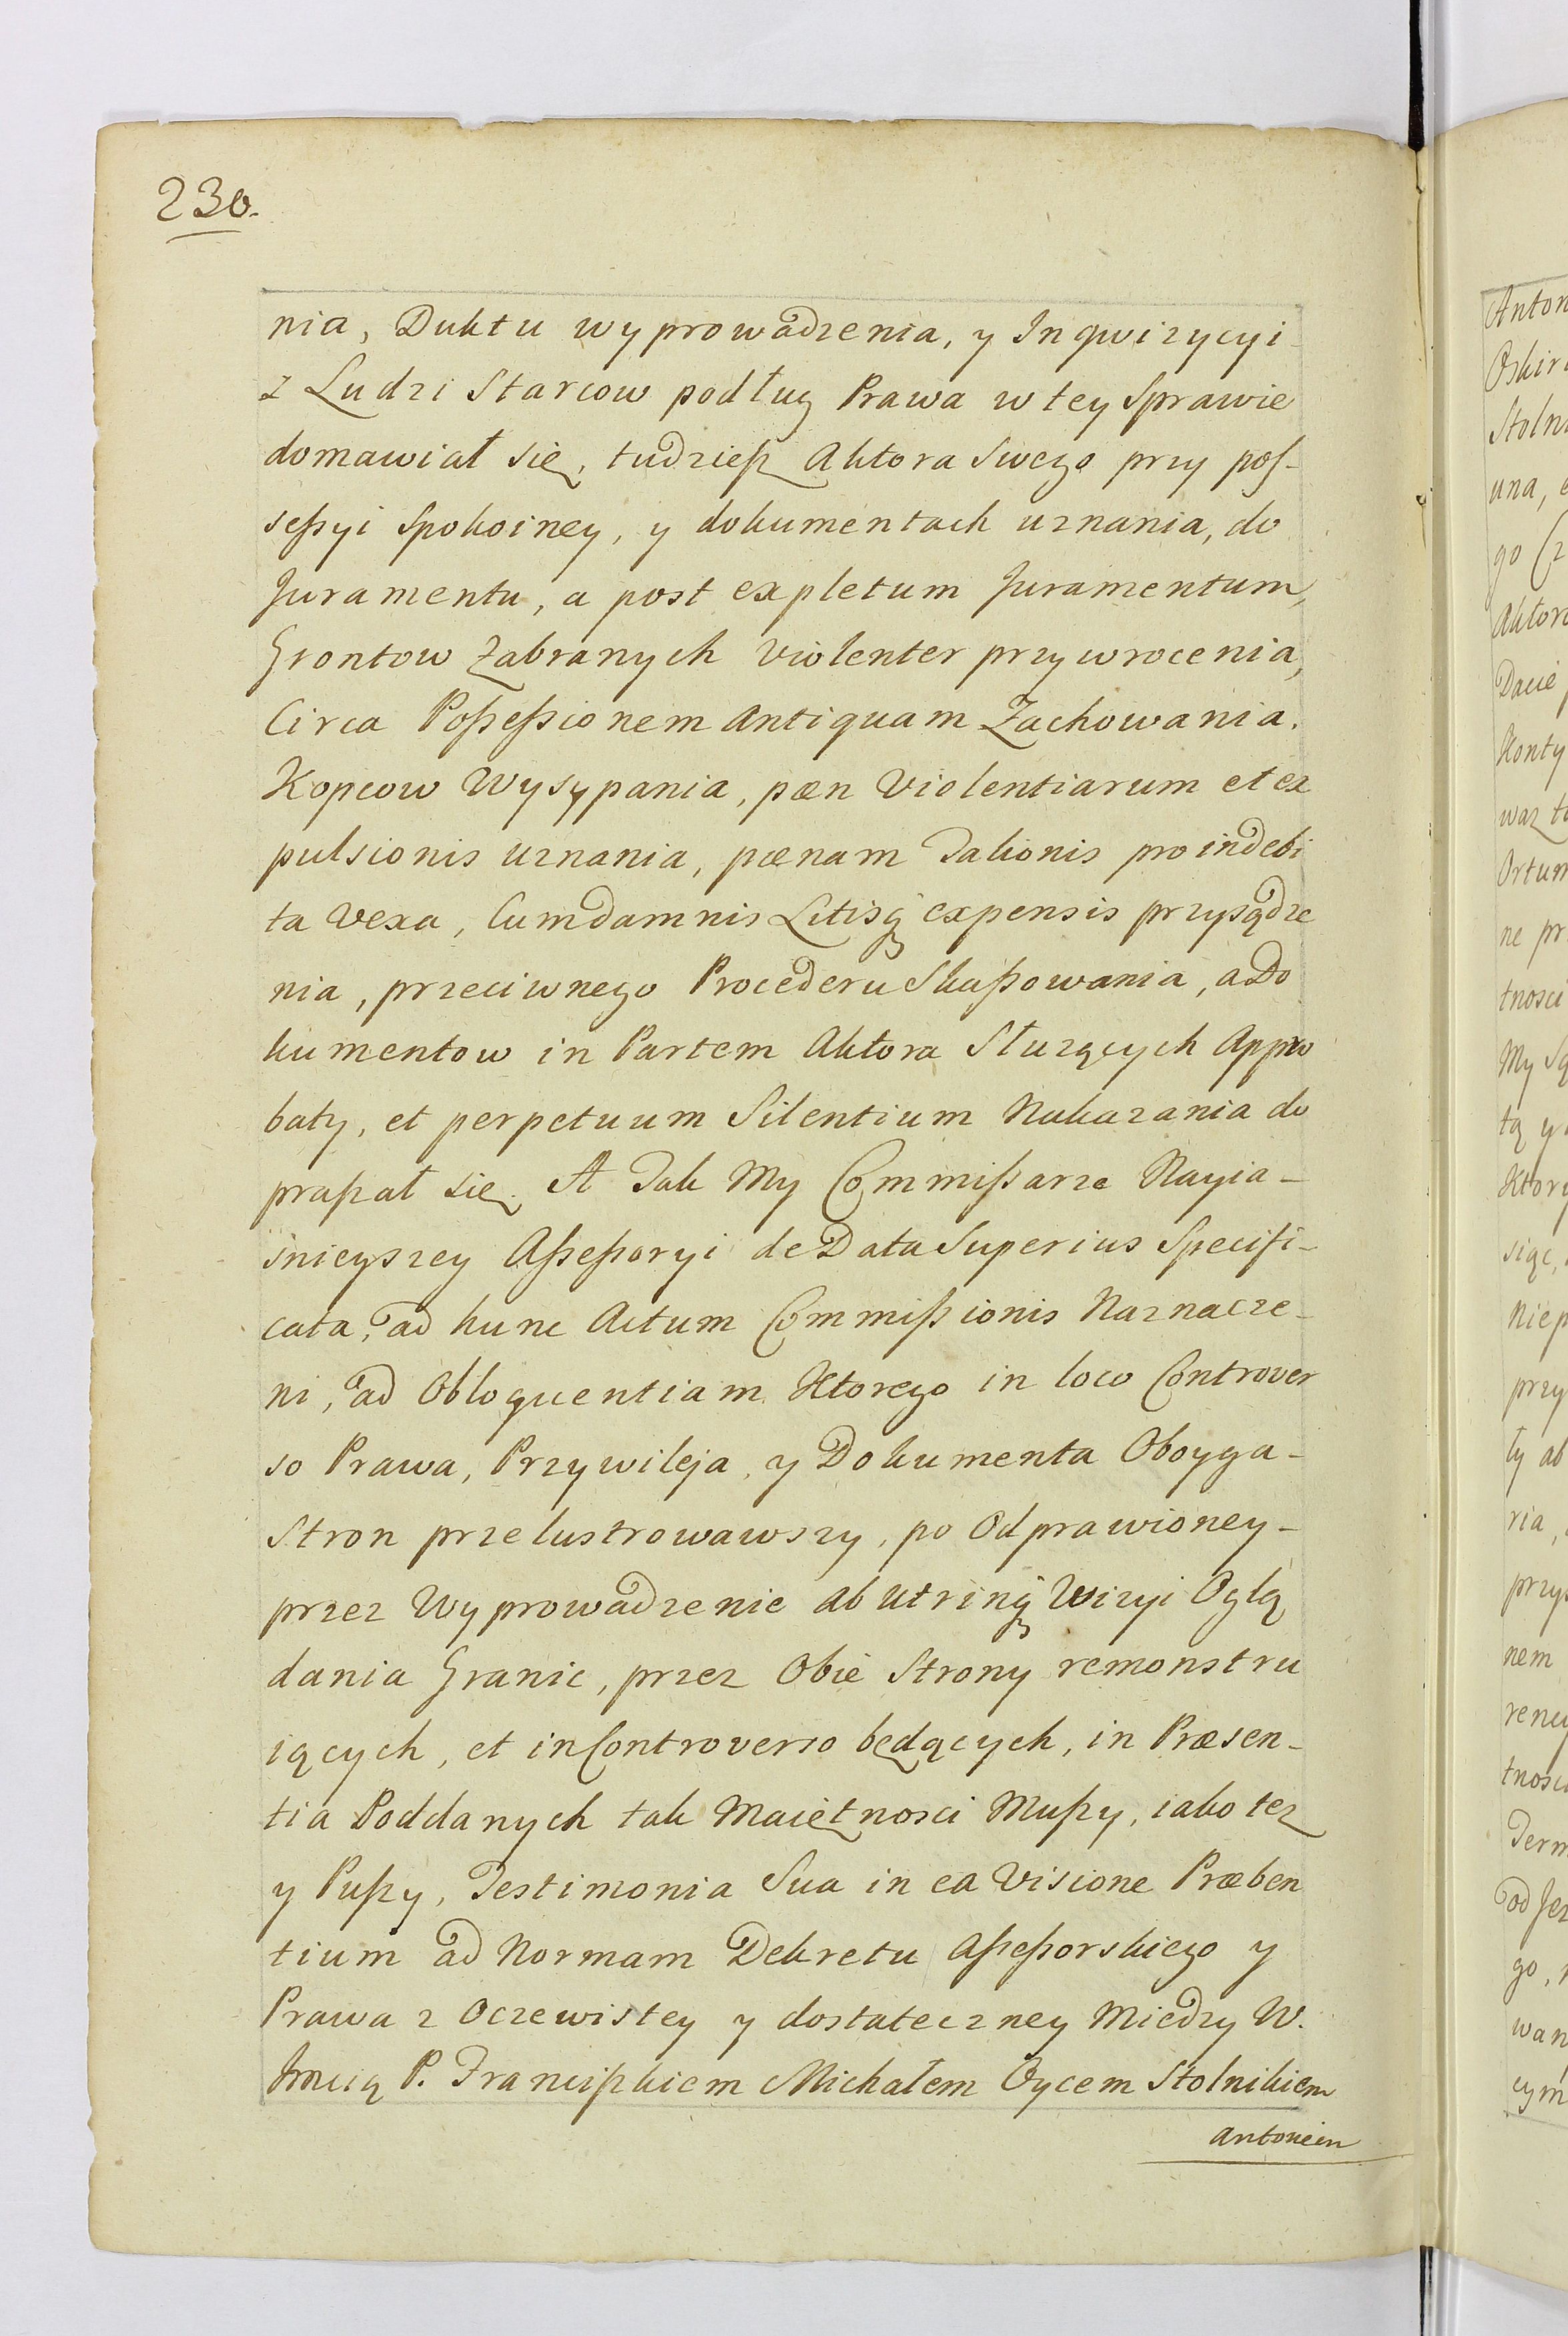 230.
nia, Duktu wyprowadzenia, y Inqwizycyi
z Ludzi Starcow podług Prawa w tey Sprawie
domawiał się, tudzieß Aktora Swego przy pos-
seßyi Spokoiney, y dokumentach uznania, do
Juramentu, a post expletum Juramentum,
Grontow Zabranych violenter przywrocenia,
Circa Poßeßionem Antiquam Zachowania.
Kopcow Wysypania, pæn Violentiarum et ex
pulsionis uznania, pænam Talionis pro indebi
ta Vexa, Cum damnis Litisq expensis przysądze
nia, przeciwnego Procederu Skaßowania, a Do
kumentow in Partem Aktora Służących Appro
baty, et perpetuum Silentium Nakazania do
praßał się. A Tak My Commißarze Nayia-
śnieyszey Aßeßoryi de Data Superius Specifi-
cata, ad hunc Actum Commißionis Naznacze-
ni, ad Obloquentiam Ktorego in loco Controver
so Prawa, Przywileja, y Dokumenta Oboyga-
Stron przelustrowawszy, po Odprawioney-
przez Wyprowadzenie ab utrinq Wizyi Oglą
dania Granic, przez Obie Strony remonstru
iących, et in Controverso będących, in Præsen-
tia Poddanych tak Maiętnosci Mußy, iako tez
y Pußy, Testimonia Sua in ea Visione Præben
tium ad Normam Dekretu Aßeßorskiego y
Prawa z Oczewistey y dostateczney Miedzy W.
Jmcią P. Franciszkiem Michałem Oycem Stolnikiem
Antonim
Anton
Stoln
una,
Aktor
Dacie
Konty
Ortum
ne pr
tnosci
My Są
tą y
Ktory
siąc,
Niep
przy
ty ab
ria,
przys
nem
tnosci
Term
go,
wan
cym